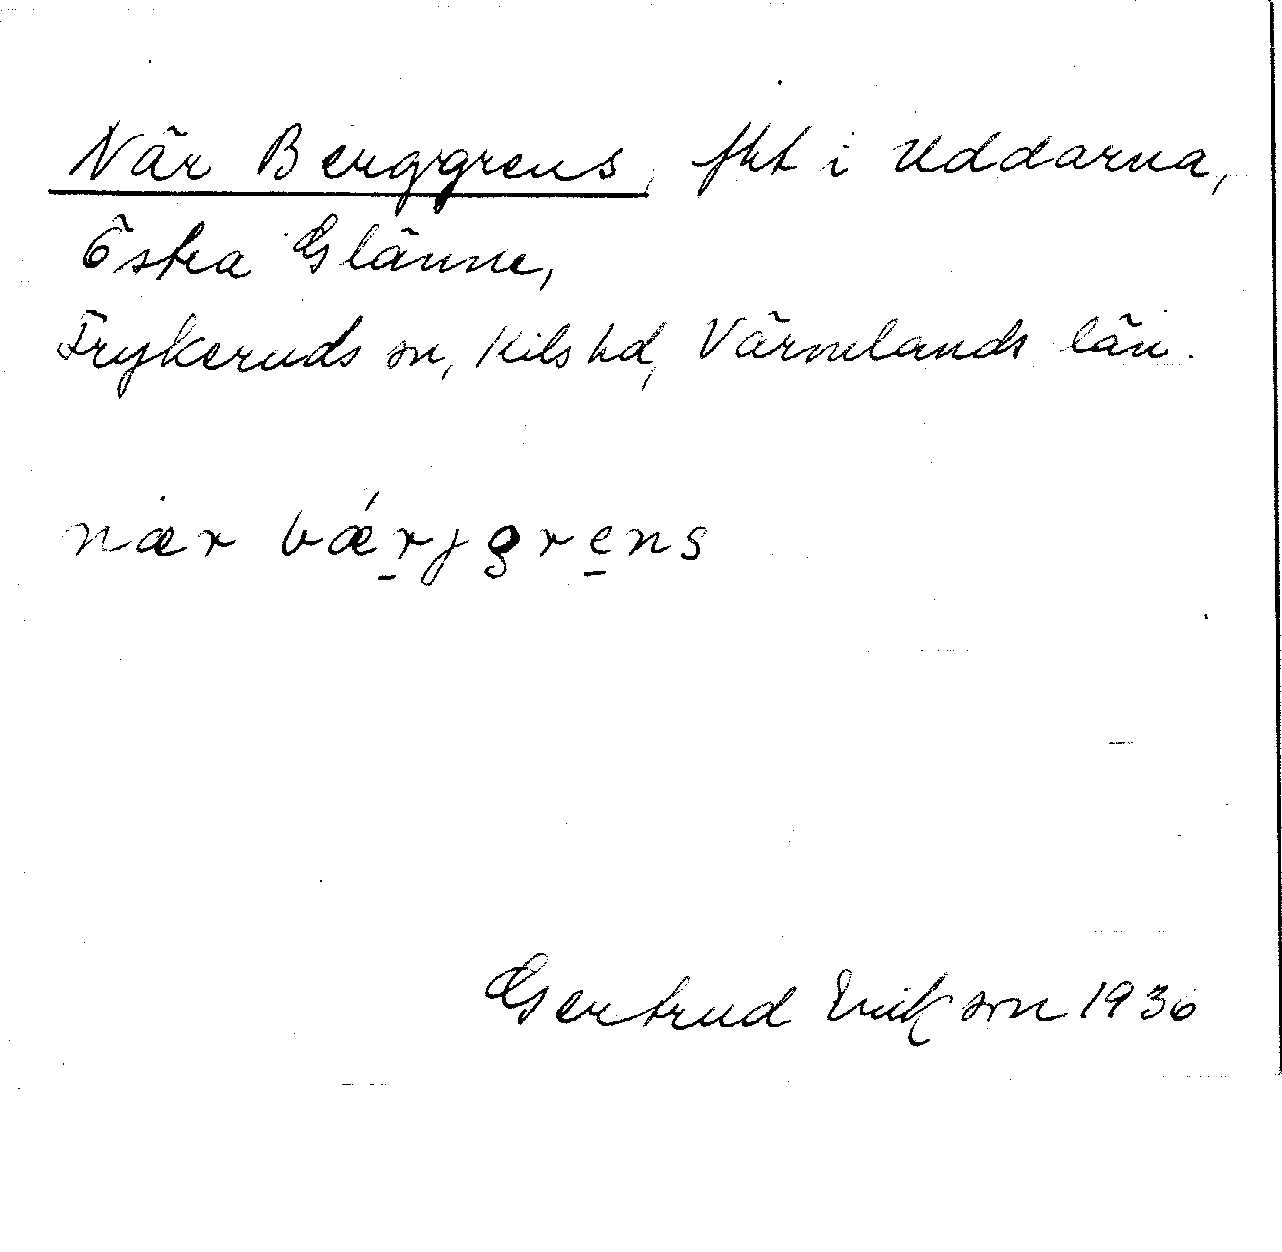 När Berggrens, fht i Uddarna,
Östra Glänne,
Frykeruds sn, Kils hd, Värmlands län.
nær bǽr̠jgre̠ns
Gertrud Erikson 1936